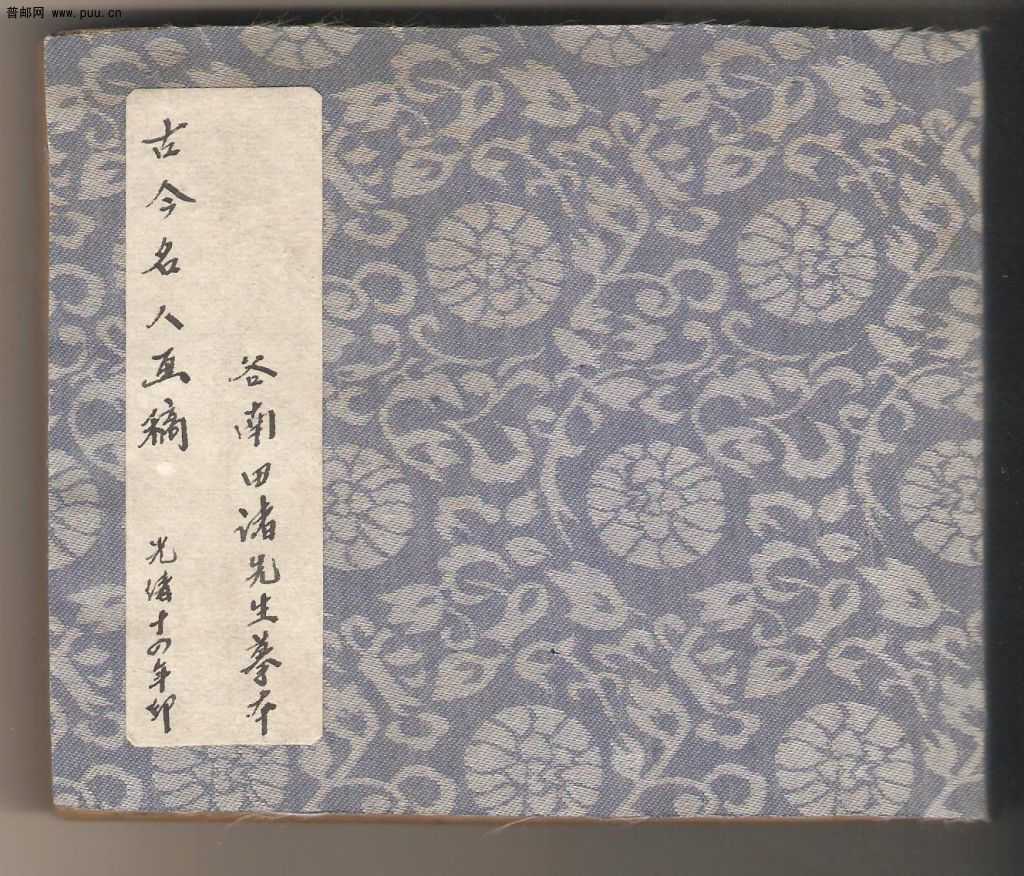 普邮网 www.puu.cn
谷南田诸先生摹本
古今名人画稿 光绪十四年印